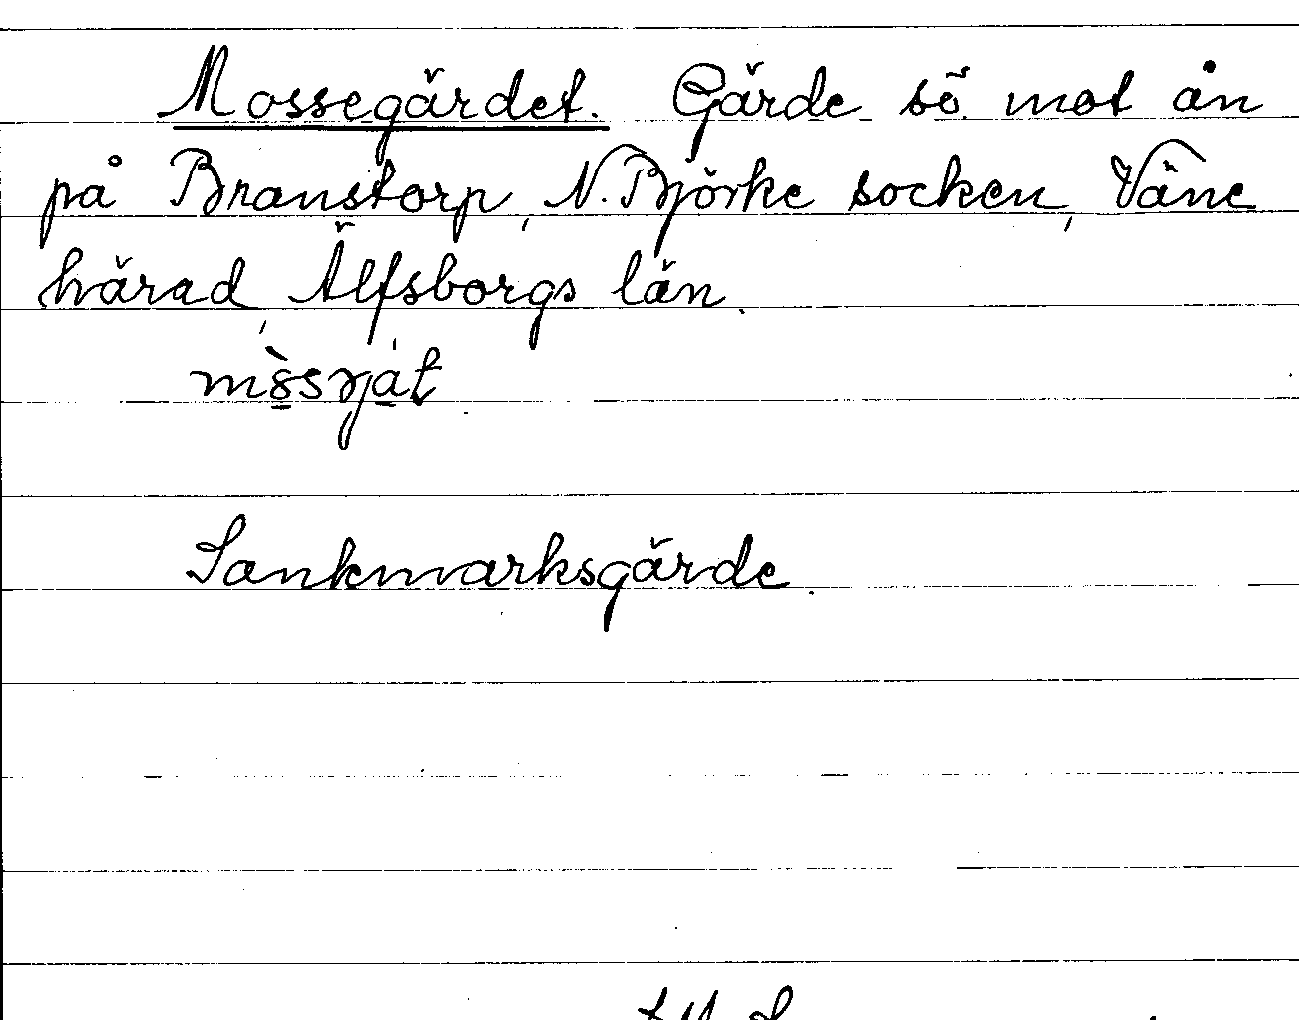 Mossegärdet. Gärde sö mot ån
på Branstorp, N. Björke socken, Väne
härad, Älfsborgs län.
Sankmarksgärde.